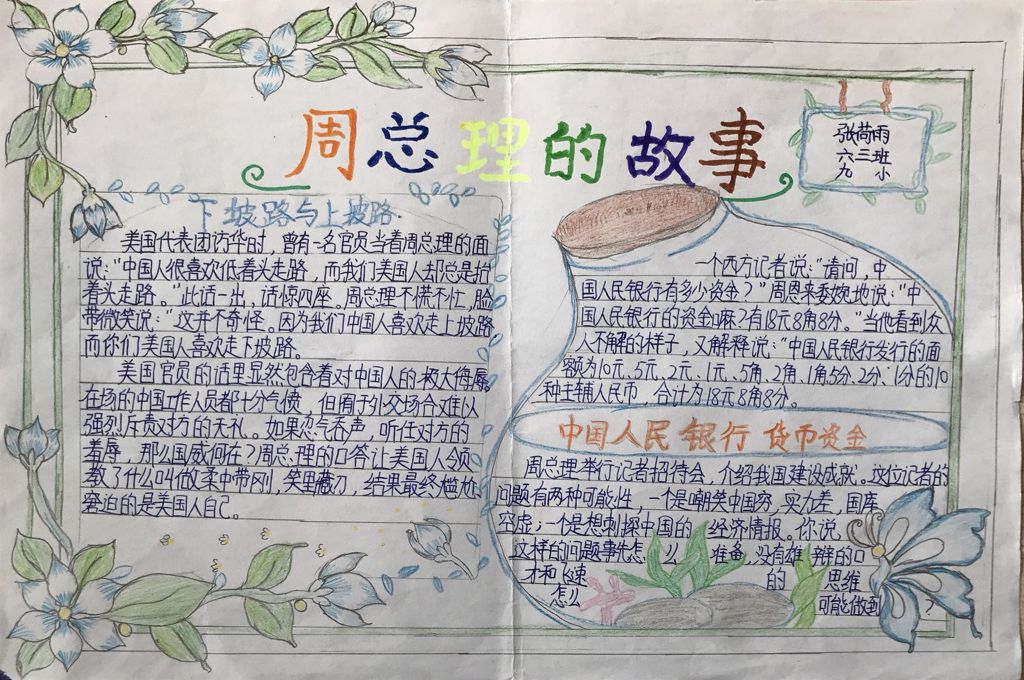 周总理的故事
张荷雨
六三班
九小
下坡路与上坡路
美国代表团访华时，曾有一名官员当着周总理的面
说："中国人很喜欢低着头走路，而我们美国人却总是抬
着头走路。"此话一出，话惊四座。周总理不慌不忙，脸
带微笑说："这并不奇怪。因为我们中国人喜欢走上坡路
而你们美国人喜欢走下坡路。
美国官员的话里显然包含着对中国人的极大侮辱。
在场的中国工作人员都十分气愤，但囿于外交场合难以
强烈斥责对方的无礼。如果忍气吞声，听任对方的
羞辱，那么国威何在？周总理的回答让美国人领
教了什么叫做柔中带刚，笑里藏刀，结果最终尴尬
窘迫的是美国人自己。
一个西方记者说："请问，中
国人民银行有多少资金？"周恩来委婉地说："中
国人民银行的资金嘛？有18元8角8分。"当他看到众
人不解的样子，又解释说："中国人民银行发行的面
额为10元、5元、2元、1元、5角、2角、1角、5分、2分、1分的10
种主辅人民币，合计为18元8角8分。
中国人民银行货币资金
周总理举行记者招待会，介绍我国建设成就。这位记者的
问题有两种可能性，一个是嘲笑中国穷，实力差，国库
空虚；一个是想刺探中国的经济情报。你说，
这样的问题事先怎么准备，没有雄辩的口
才和飞速的思维
怎么可能做到？